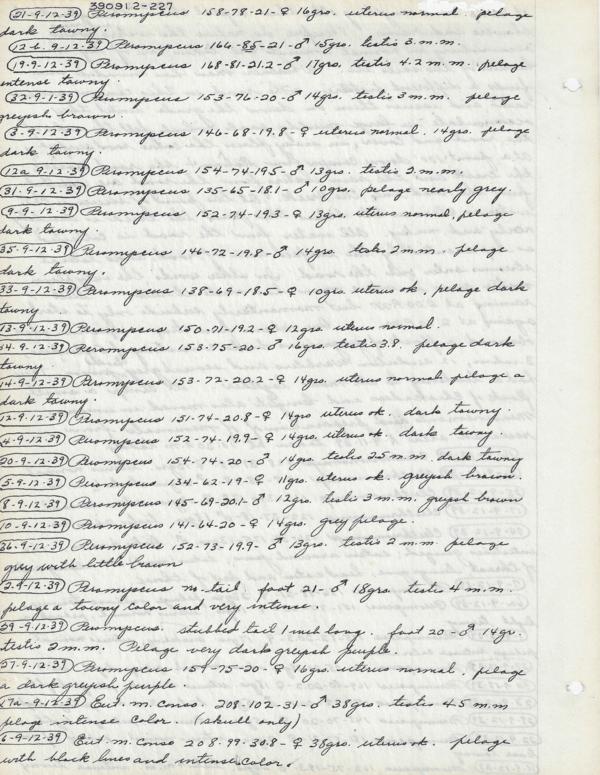 390912-227
(21-9-12-39) Peromyscus 158-78-21-♀ 16grs. uterus normal. pelage
dark tawny.
(12-b. 9-12-39) Peromyscus 166-85-21-♂ 15grs. testis 3 m.m.
(19.9-12-39) Peromyscus 168-81-21.2-♂ 17grs. testis 4.2 m.m. pelage
intense tawny.
(32-9-1-39) Peromyscus 153-76-20-♂ 14grs. testis 3 m.m. pelage
greyish brown.
(3-9-12-39) Peromyscus 146-68-19.8-♀ uterus normal. 14grs. pelage
dark tawny.
(12a 9-12-39) Peromyscus 154-74-195-♂ 13grs. testis 2.m.m.
(31-9-12-39) Peromyscus 135-65-18.1-♂ 10grs. pelage nearly grey.
(9-9-12-39) Peromyscus 152-74-19.3-♀ 13grs. uterus normal, pelage
dark tawny.
35-9-12-39) Peromyscus 146-72-19.8-♂ 14grs. testis 2mm. pelage
dark tawny.
33-9-12-39) Peromyscus 138-69-18.5-♀ 10grs. uterus ok. pelage dark
tawny
13-9-12-39) Peromyscus 150-71-19.2-♀ 12grs. uterus normal.
34-9-12-39) Peromyscus 153-75-20-♂ 16grs. testis 3.8. pelage dark
tawny
14-9-12-39) Peromyscus 153-72-20.2-♀ 14grs. uterus normal pelage a
dark tawny.
12-9-12-39) Peromyscus 151-74-20.8-♀ 14grs uterus ok. dark tawny.
4-9-12-39) Peromyscus 152-74-19.9-♀ 14grs. uterus ok. dark tawny.
20-9-12-39) Peromyscus 154-74-20-♂ 14grs. testis 2.5 m.m. dark tawny
5-9-12-39) Peromyscus 134-62-19-♀ 11grs. uterus ok. greyish brown.
8-9-12-39) Peromyscus 145-69-20.1-♂ 12grs. testis 3 m.m. greyish brown
10-9-12-39) Peromyscus 141-64-20-♀ 14grs. grey pelage.
36-9-12-39) Peromyscus 152-73-19.9-♂ 13grs. testis 2 m.m. pelage
grey with little brown
2-9-12-39) Peromyscus no-tail foot 21-♂ 18grs. testis 4 m.m.
pelage a tawny color and very intense.
29-9-12-39) Peromyscus. stubbed tail 1 inch long. foot 20-♂ 14gr.
testis 2m.m. Pelage very dark greyish purple.
37-9-12-39) Peromyscus 159-75-20-♀ 16grs. uterus normal, pelage
a dark greyish purple.
17a-9-12-39) Eut. m. conso. 208-102-31-♂ 38grs. testis 45 m.m
pelage intense color. (skull only)
6-9-12-39) Eut. m. conso 208-99-30.8-♀ 38grs. uterus ok. pelage
with black lines and intense color.